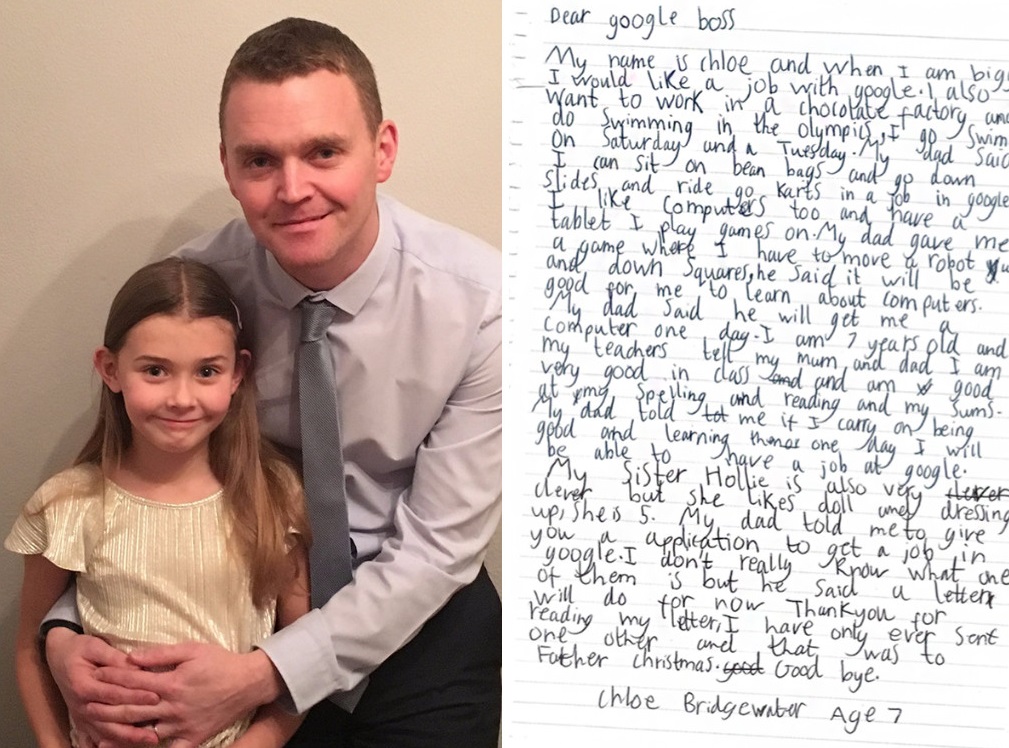 Dear google boss
My name is chloe and when I am bigg
I would like a job with google. I also
want to work in a chocolate factory and
do swimming in the olympics, I go swim
on Saturday and a Tuesday. My dad said
I can sit on bean bags and go down
slides and ride go karts in a job in google
I like computers too and have a
tablet I play games on. My dad gave me
a game where I have to move a robot
and down squares, he said it will be
good for me to learn about computers.
My dad said he will get me a
computer one day. I am 7 years old and
my teachers tell my mum and dad I am
very good in class and and am good
at my spelling and reading and my sums.
My dad told tot me if I carry on being
good and learning one day I will
be able to have a job at google.
My sister Hollie is also very
clever but she likes doll and dressing
up, she is 5. My dad told me to give
you a application to get a job in
google. I don't really know what one
of them is but he said a letter
will do for now Thankyou for
reading my letter, I have only ever sent
one other and that was to
Father christmas. good Good bye.
Chloe Bridgewater Age 7